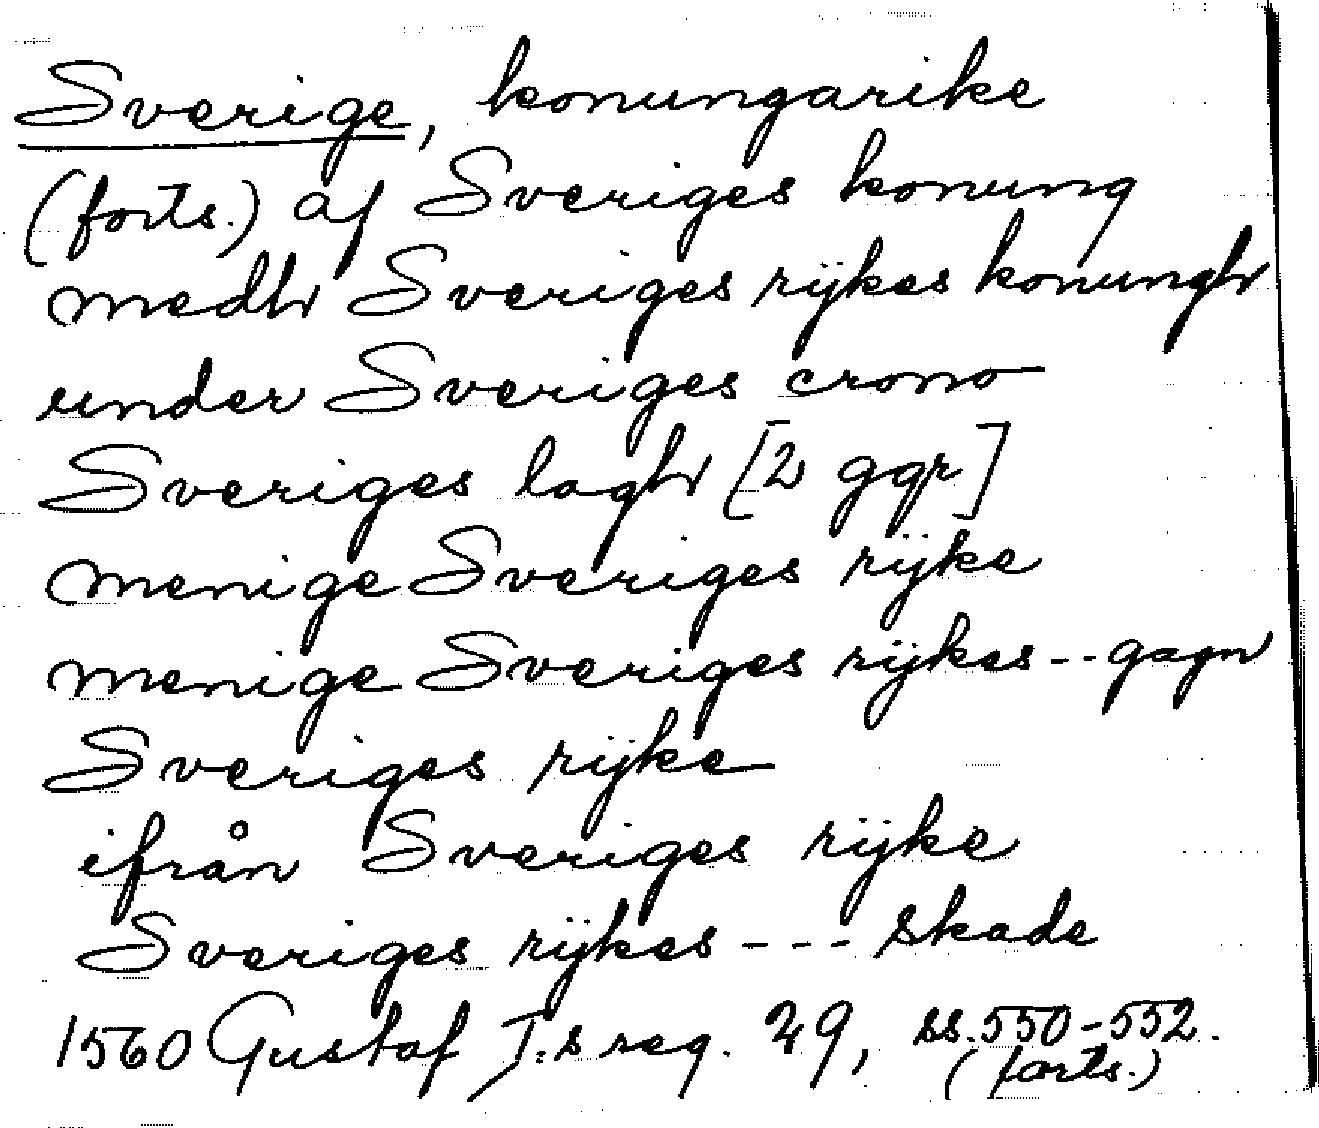 Sverige, konungarike
(forts.) af Sveriges konung
medh Sveriges rijkes konungh
under Sveriges crono
Sveriges lagh [2 ggr]
menige Sveriges rijke
menige Sveriges rijkes -- gagn
Sveriges rijke
ifrån Sveriges rijke
Sveriges rijkes --- skade
1560 Gustaf I:s reg. 29, ss. 550-552.
(forts.)